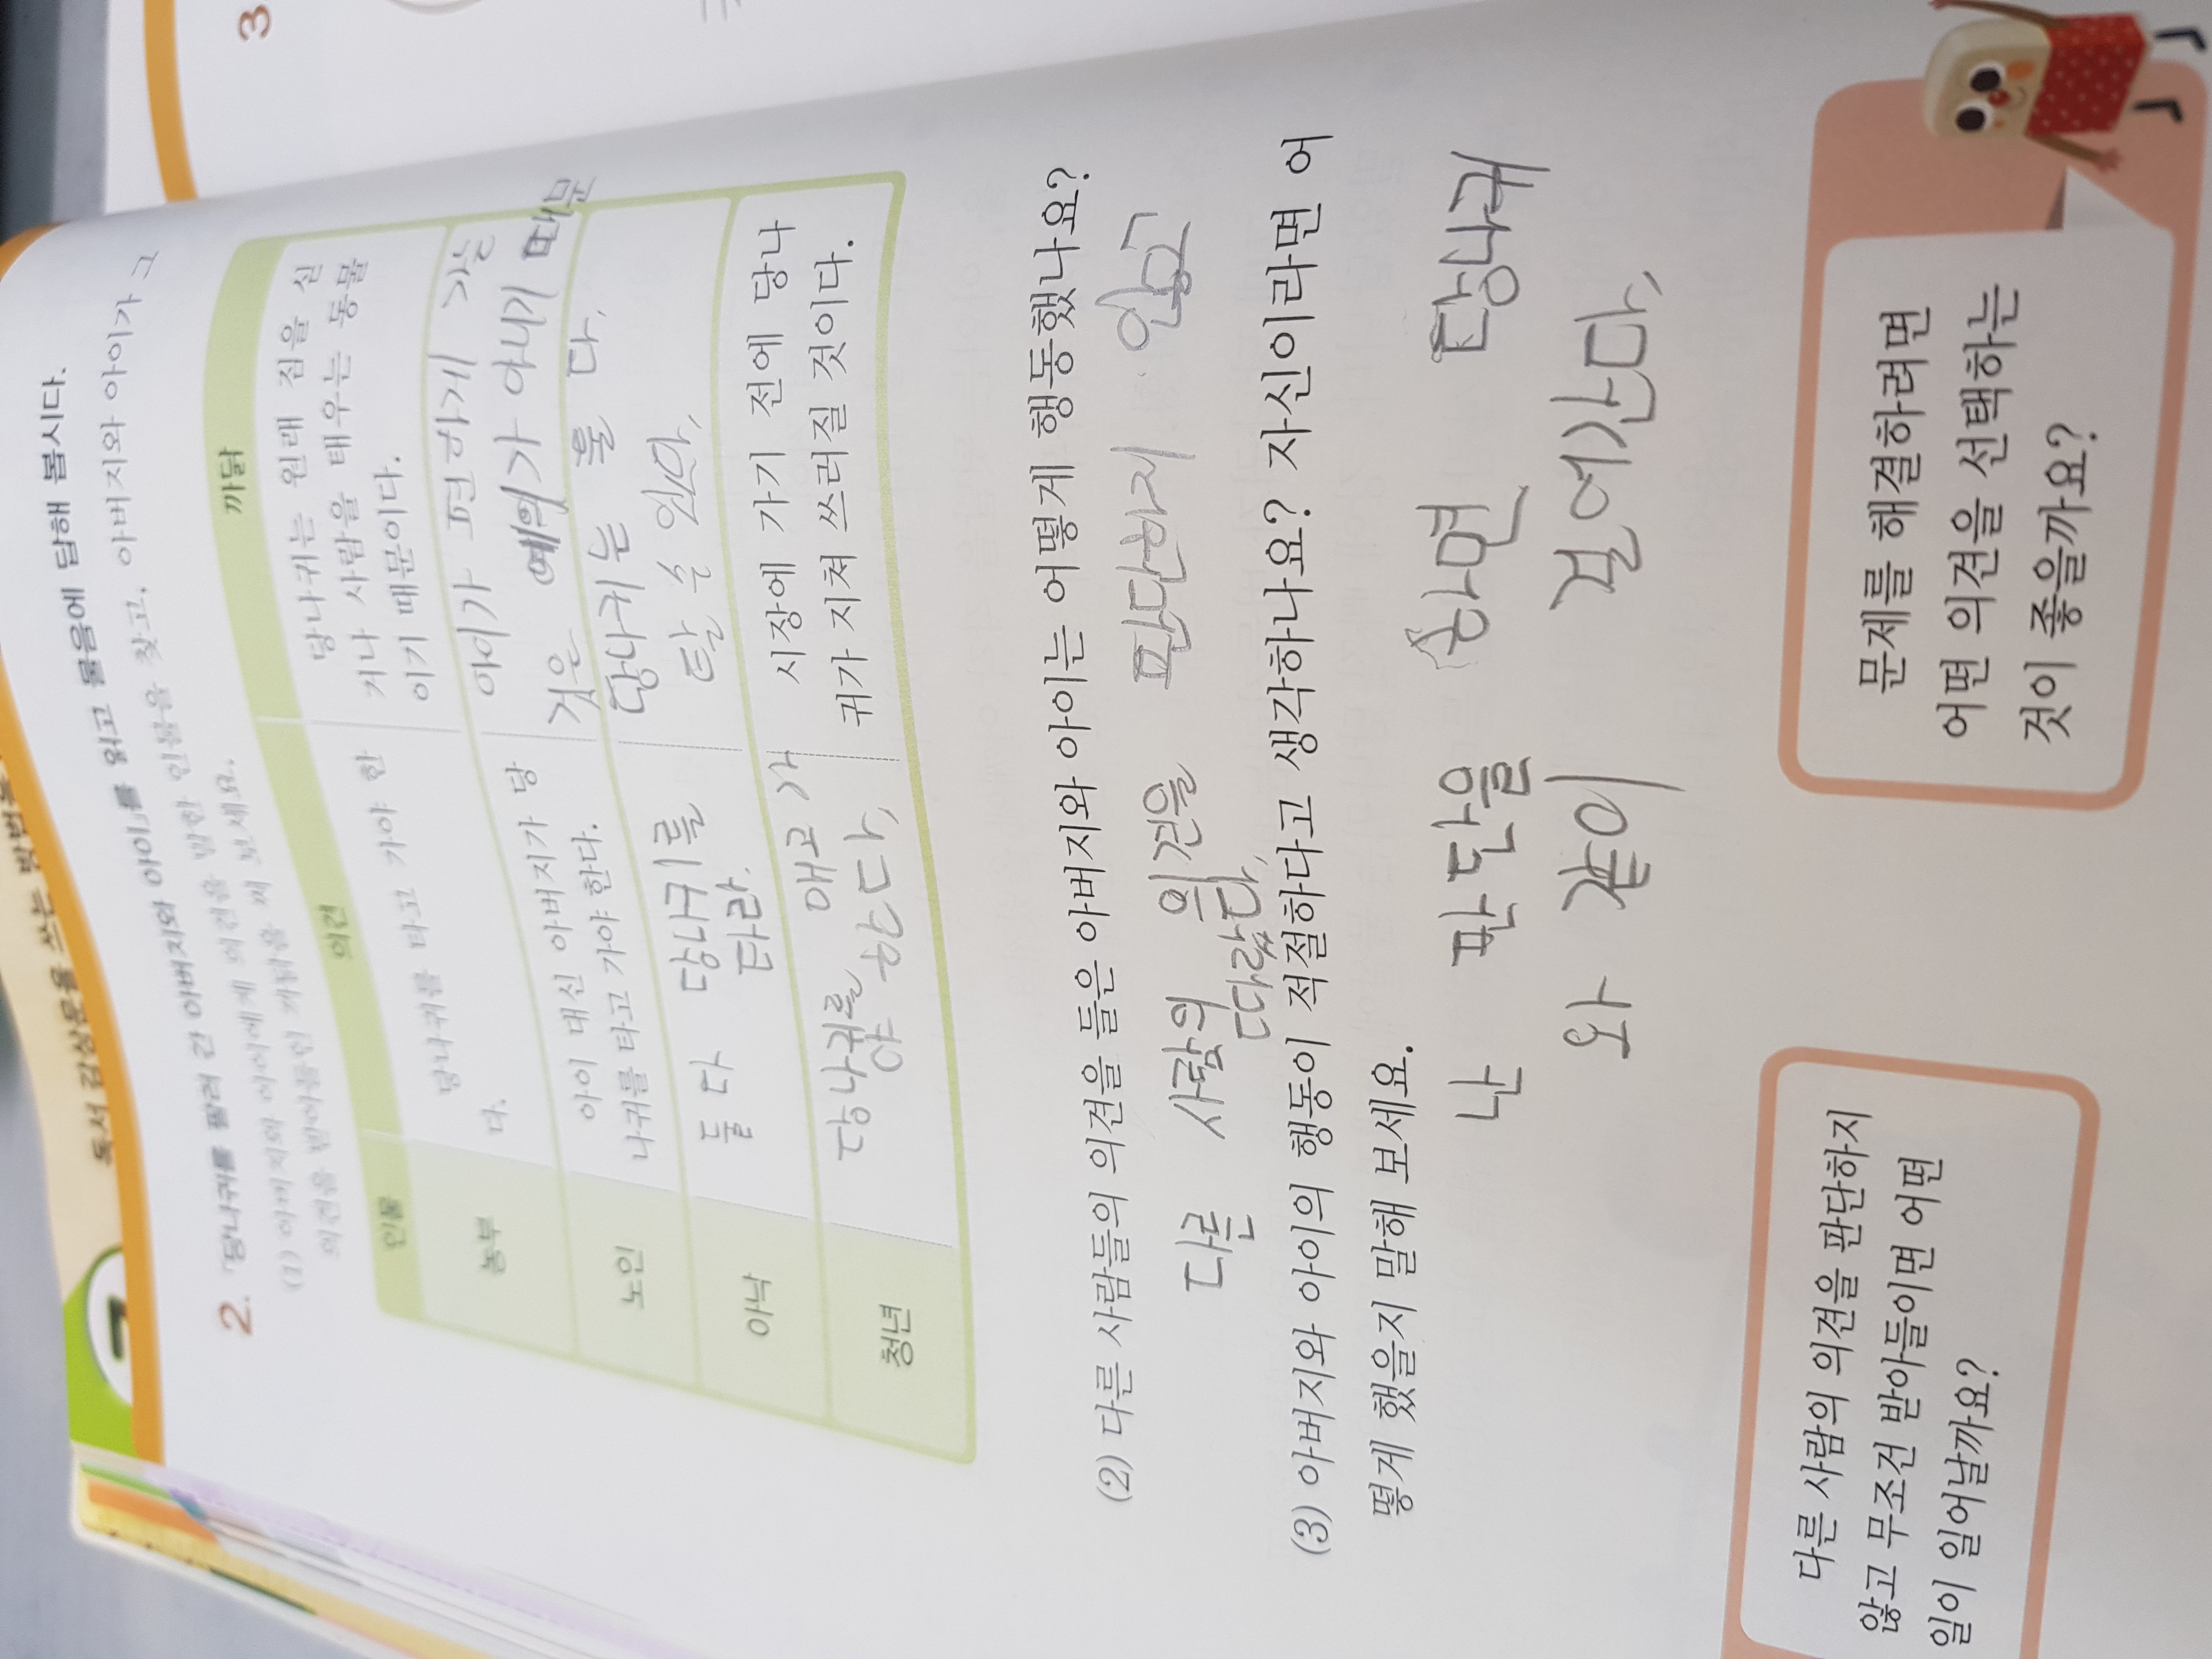 독서 감상문을 쓰는 방법을
2. 「당나귀를 팔러 간 아버지와 아이」를 읽고 물음에 답해 봅시다.
(1) 아버지와 아이에게 의견을 말한 인물을 찾고, 아버지와 아이가 그
의견을 받아들인 까닭을 써 보세요.
인물 의견 까닭
농부
당나귀를 타고 가야 한
다.
당나귀는 원래 짐을 싣
거나 사람을 태우는 동물
이기 때문이다.
노인
아이 대신 아버지가 당
나귀를 타고 가야 한다.
아이가 편하게 가는
것은 예의가 아니기 때문
아낙
둘 다 당나귀를
타라.
당나귀는 둘 다,
탈 수 있다,
청년
당나귀를 매고 가
야 한다,
시장에 가기 전에 당나
귀가 지쳐 쓰러질 것이다.
(2) 다른 사람들의 의견을 들은 아버지와 아이는 어떻게 행동했나요?
다른 사람의 의견을 판단하지 않고
따랐다,
(3) 아버지와 아이의 행동이 적절하다고 생각하나요? 자신이라면 어
떻게 했을지 말해 보세요.
난 판단을 하면 당나귀
와 같이 걸어간다,
다른 사람의 의견을 판단하지
않고 무조건 받아들이면 어떤
일이 일어날까요?
문제를 해결하려면
어떤 의견을 선택하는
것이 좋을까요?
3